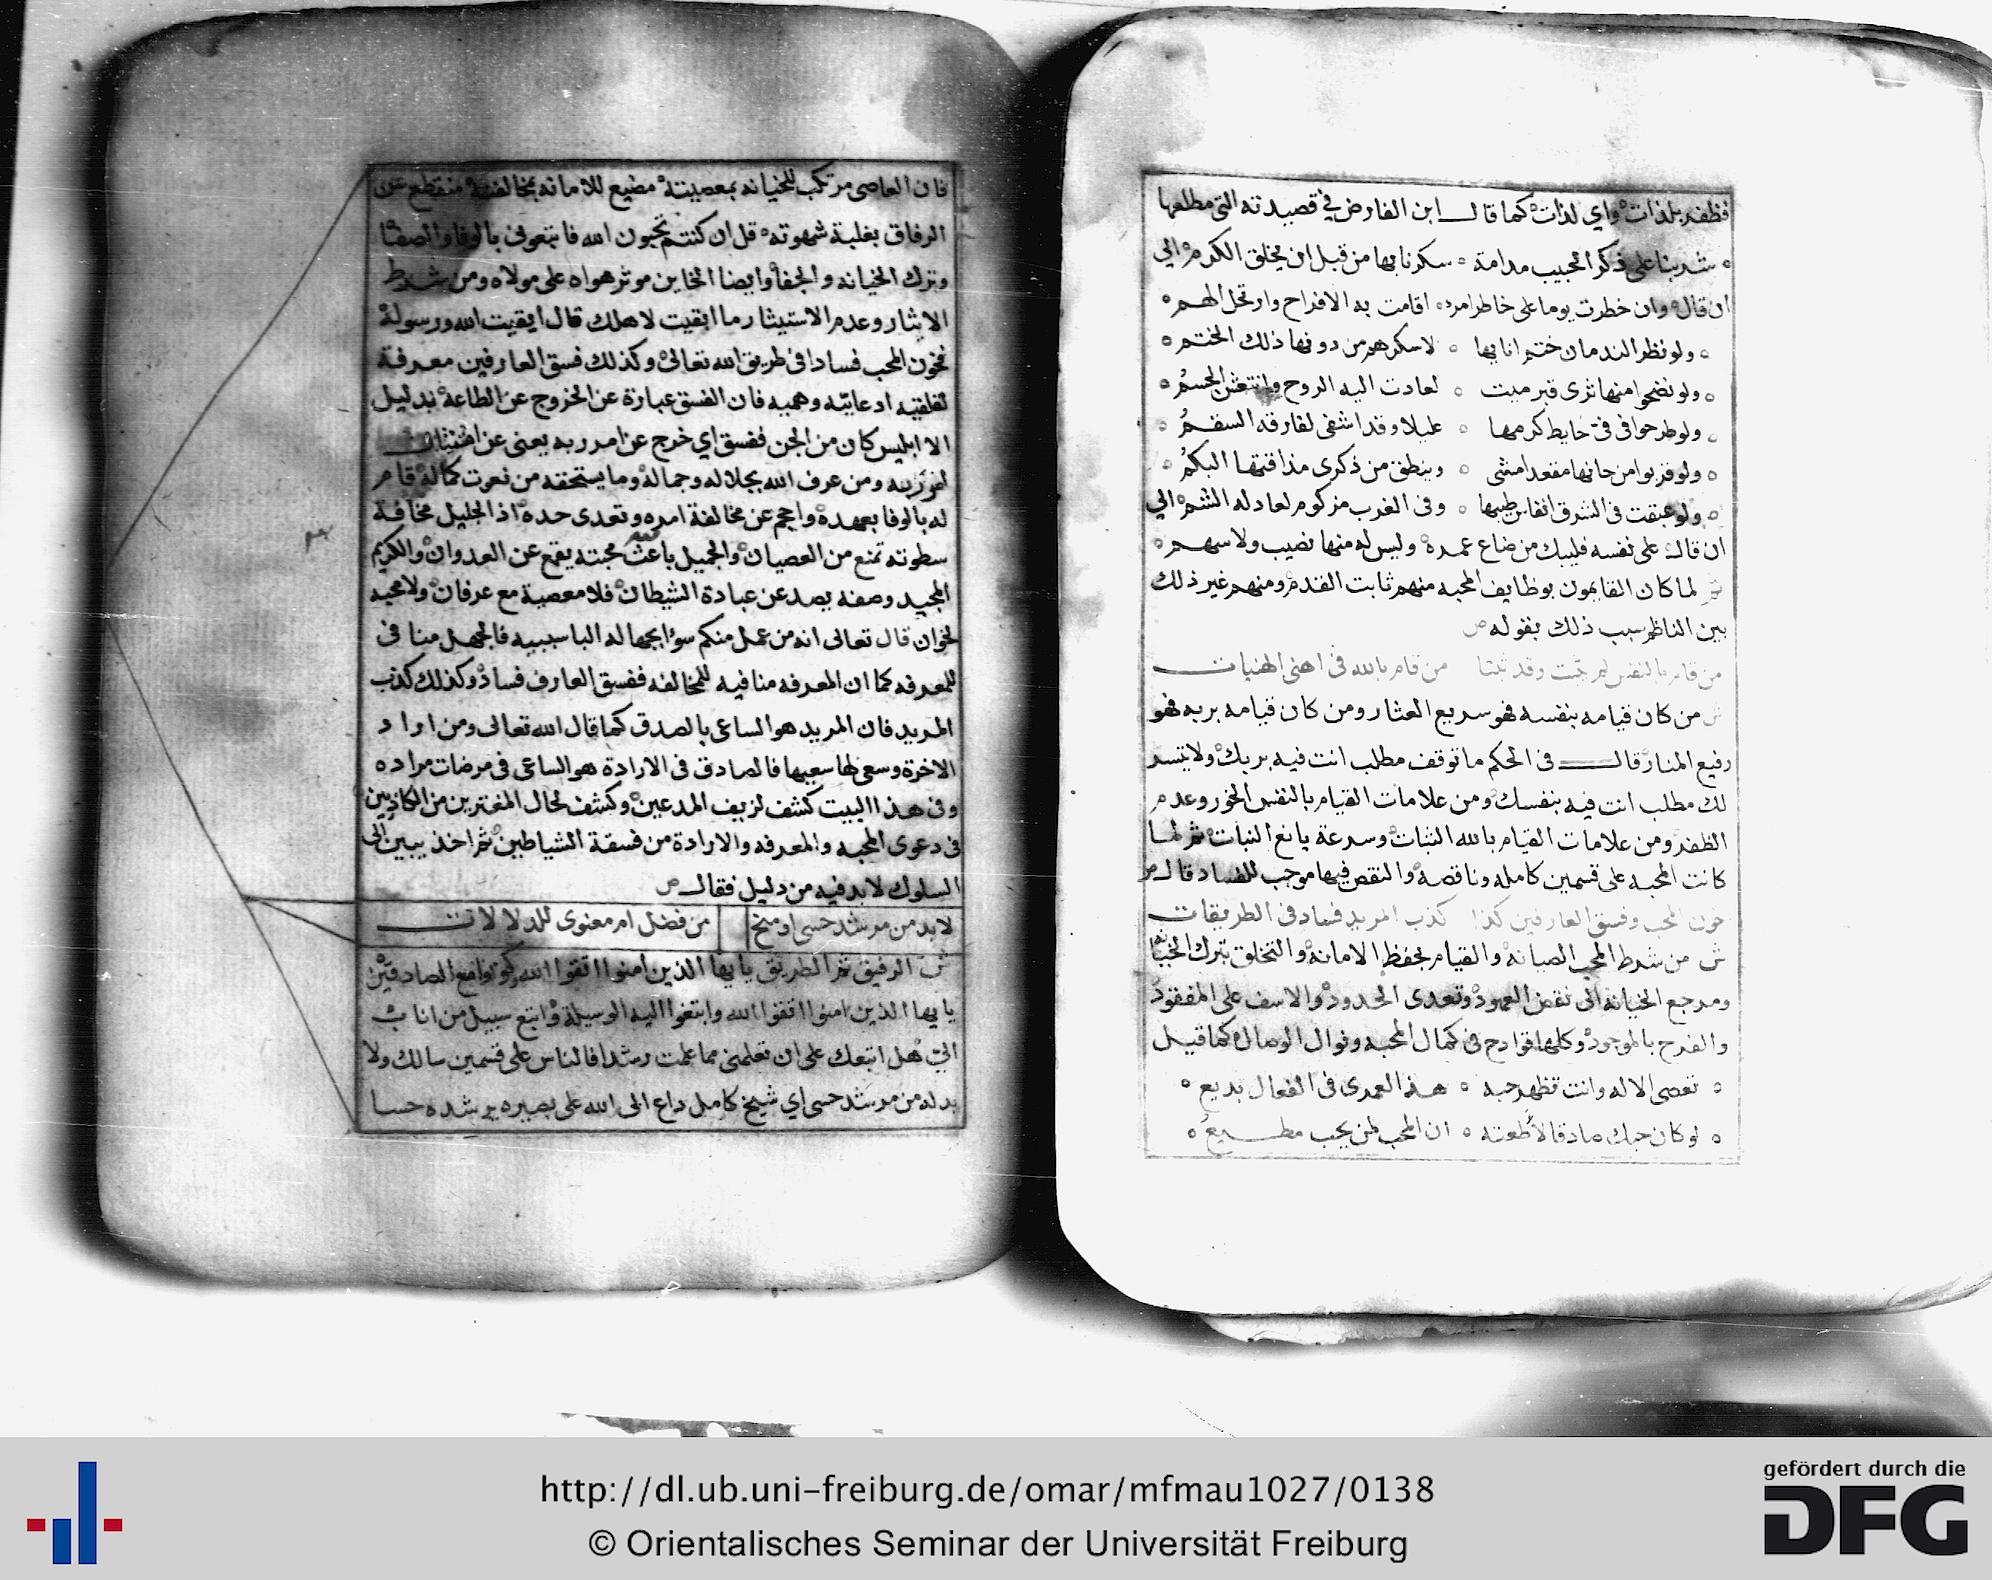 فظفر بلذات واي لذات كما قال ابن الفارض في قصيدته التي مطلعها
شربنا على ذكر الحبيب مدامة سكرنا بها من قبل ان يخلق الكرم الي
ان قال وان خطرت يوما على خاطر امرء اقامت به الافراح وارتحل الهم
ولو نظر الندمان ختم انايها لاسكرهم من دونها ذلك الختم
ولو نضحوا منها ثرى قبر ميت لعادت اليه الروح وانتعش الجسم
ولو طرحوا في في حايط كرمها عليلا وقد اشفى لفارقه السقم
ولو قربوا من حانها مقعدا مشى وينطق من ذكرى مذاقتها البكم
ولو عبقت في الشرق انفاس طيبها وفى الغرب مزكوم لعاد له الشم الي
ان قال على نفسه فليبك من ضاع عمره وليس له منها نصيب ولا سهم
ثم لما كان القايمون بوظايف المحبه منهم ثابت القدم ومنهم غير ذلك
بين الناظم سبب ذلك بقوله ص
من قام بالنفس لم تثبت وقد ثبتا من قام بالله فى اهنى الهنيات
ش من كان قيامه بنفسه فهو سريع العثار ومن كان قيامه بربه فهو
رفيع المنار قال فى الحكم ما توقف مطلب انت فيه بربك ولا تيسر
لك مطلب انت فيه بنفسك ومن علامات القيام بالنفس الخور وعدم
الظفر ومن علامات القيام بالله الثبات وسرعة يانع النبات ثم لما
كانت المحبه على قسمين كامله وناقصة والنقص فيها موجب للفساد قال ص
خون المحب وفسق العارفين كذا كذب المريد فساد فى الطريقات
ش من شرط المحب الصيانه والقيام بحفظ الامانة والتخلق بترك الخيانه
ومرجع الخيانه الى نقض العهود وتعدى الحدود والاسف على المفقود
والفرح بالموجود وكلها قوادح فى كمال المحبه ونوال الوصال كما قيل
تعصى الاله وانت تظهر حبه هذا لعمرى فى الفعال بديع
لو كان حبك صادقا لاطعته ان المحب لمن يحب مطيع
فان العاصى مرتكب للخيانه بمعصيته مضيع للامانه بمخالفته منقطع عن
الرفاق بغلبة شهوته قل ان كنتم تحبون الله فاتبعونى بالوفا والصفا
وترك الخيانه والجفا وايضا الخاين موثر هواه على مولاه ومن شرط
الايثار وعدم الاستيثار ما ابقيت لاهلك قال ابقيت الله ورسوله
فخون المحب فسادا فى طريق الله تعالى وكذلك فسق العارفين معرفة
ادعاييه وهميه فان الفسق عبارة عن الخروج عن الطاعة بدليل
الا ابليس كان من الجن ففسق اي خرج عن امر ربه يعنى عن امتثال
امر ربه ومن عرف الله بجلاله وجماله وما يستحقه من نعوت كماله قام
له بالوفا بعهده واحجم عن مخالفة امره وتعدى حده اذ الجليل مخافة
سطوته تمنع من العصيان والجميل باعث محبته يقمع عن العدوان والكريم
المجيد وصفه يصد عن عبادة الشيطان فلا معصية مع عرفان ولا محبه
لخوان قال تعالى انه من عمل منكم سوءا بجهاله الباسببيه فالجهل منافى
للمعرفه كما ان المعرفه منافيه للمخالفه ففسق العارف فساد وكذلك كذب
المريد فان المريد هو الساعى بالصدق كما قال الله تعالى ومن اراد
الاخرة وسعى لها سعيها فالصادق فى الارادة هو الساعى فى مرضات مراده
وفى هذا البيت كشف لزيف المدعين وكشف لحال المفترين من الكاذبين
فى دعوى المحبه والمعرفه والارادة من فسقة الشياطين ثم اخذ يبين الى
السلوك لابد فيه من دليل فقال ص
لابد من مرشد حسى او منح من فضل ام معنوى للدلالات
ش الرفيق ثم الطريق يا يها الذين امنوا اتقوا الله وكونوا مع الصادقين
يا يها الذين امنوا اتقوا الله وابتغوا اليه الوسيلة واتبع سبيل من اناب
الي هل اتبعك على ان تعلمنى مما علمت رشدا فالناس على قسمين سالك ولا
بد له من مرشد حسى اي شيخ كامل داع الى الله على بصيره يرشده حسا
http://dl.ub.uni-freiburg.de/omar/mfmau1027/0138
© Orientalisches Seminar der Universität Freiburg
gefördert durch die
DFG